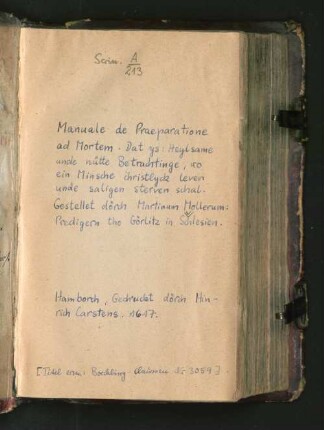 Scrin. A
213
Manuale de Praeparatione
ad Mortem. Dat ys: Heylsame
unde nütte Betrachtinge, wo
ein Minsche christlyck leven
unde saligen sterven schal.
Gestellet dörch Martinum Mollerum:
Predigern tho Görlitz in Slesien.
Hamborch, Gedrucket dörch Hin-
rich Carstens. 1617.
[Titel erm: Borchling-Claussen 3059]